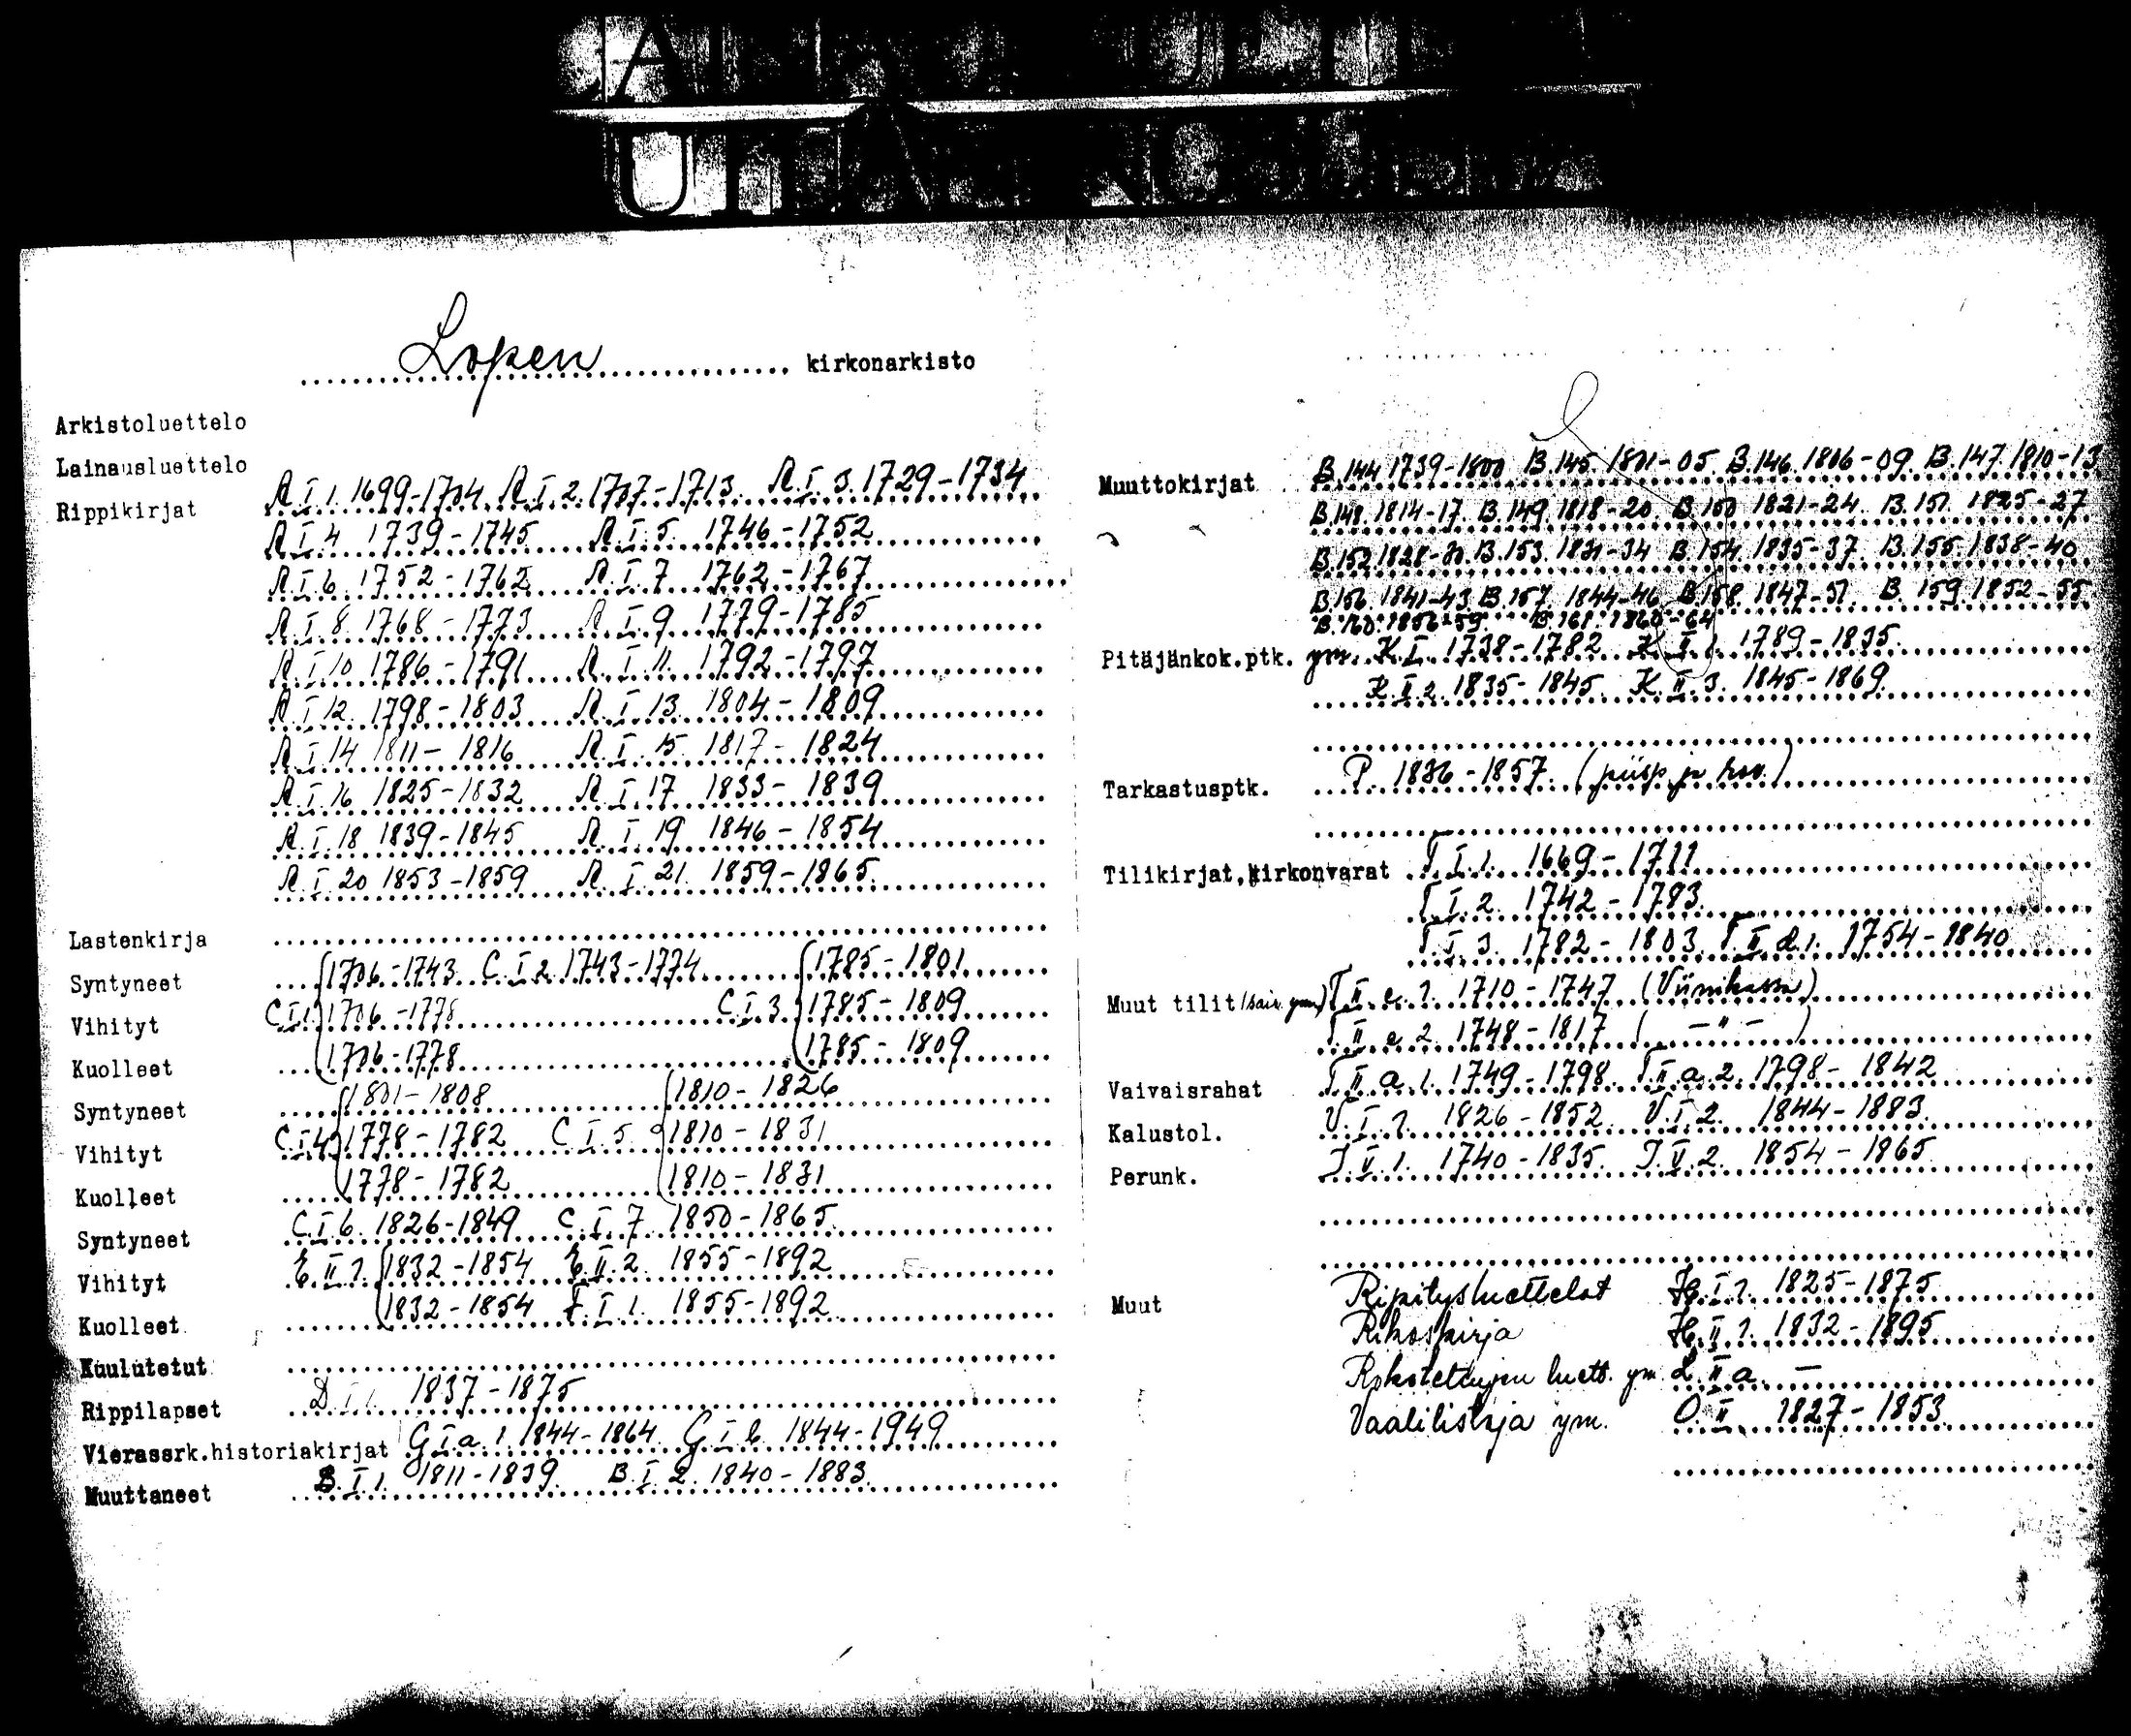 Lopen kirkonarkisto
Arkistoluettelo
Lainausluettelo
Rippikirjat A.I.1. 1699-1704 A.I.2. 1707-1713 A.I.3. 1729-1734
A.I.4 1739-1745 A.I.5. 1746-1752
A.I.6. 1752-1762 A.I.7 1762-1767
A.I.8. 1768-1773 A.I.9 1779-1785
A.I.10 1786-1791 A.I.11. 1792-1797
A.I.12. 1798-1803 A.I.13. 1804-1809
A.I.14 1811-1816 A.I.15. 1817-1824
A.I.16 1825-1832 A.I.17 1833-1839
A.I.18 1839-1845 A.I.19 1846-1854
A.I.20 1853-1859 A.I.21. 1859-1865
Lastenkirja
Syntyneet 1706-1743 C.I.2. 1743-1774 1785-1801
Vihityt C.I.1. 1706-1778 C.I.3. 1785-1809
Kuolleet 1706-1778 1785-1809
Syntyneet 1801-1808 1810-1826
Vihityt C.I.4. 1778-1782 C.I.5. 1810-1831
Kuolleet 1778-1782 1810-1831
Syntyneet C.I.6. 1826-1849 C.I.7. 1850-1865
Vihityt E.II.1. 1832-1854 E.II.2. 1855-1892
Kuolleet 1832-1854 F.I.1. 1855-1892
Kuulutetut
Rippilapset D.I.1. 1837-1875
Vierassrk.historiakirjat G.I.a.1. 1844-1864 G.I.b. 1844-1949
Muuttaneet B.I.1. 1811-1839 B.I.2. 1840-1883
Muuttokirjat B.144 1739-1800 B.145. 1801-05. B.146. 1806-09. B.147. 1810-13
B.148. 1814-17. B.149. 1818-20. B.150 1821-24. B.151. 1825-27
B.152 1828-30. B.153. 1831-34 B.154. 1835-37. B.155. 1838-40
B.156. 1841-43 B.157 1844-46 B.158. 1847-51. B.159. 1852-55
B.160. 1856-59. B.161. 1860-64
Pitäjänkok.ptk. ym. K.I. 1738-1782 K.II.1. 1789-1835.
K.II.2. 1835-1845 K.II.3. 1845-1869
Tarkastusptk. P. 1836-1857. (piisp. ja rov.)
Tilikirjat,kirkonvarat T.I.1. 1669-1711
T.I.2. 1742-1783.
T.I.3. 1782-1803. T.II.d.1. 1754-1840
Muut tilit T.II.e.1. 1710-1747 (Viinikassa)
T.II.e.2. 1748-1817 ( -"- )
Vaivaisrahat T.II.a.1. 1749-1798. T.II.a.2. 1798-1842
Kalustol. V.I.1. 1826-1852. V.I.2. 1844-1883.
Perunk. J.V.1. 1740-1835. J.V.2. 1854-1865
Muut Ripitysluettelot H.I.1. 1825-1875
Rikoskirja H.II.1. 1832-1895
Rokotettujen luett. ym. L.II.a. —
Vaalilistoja ym. O.II. 1827-1853